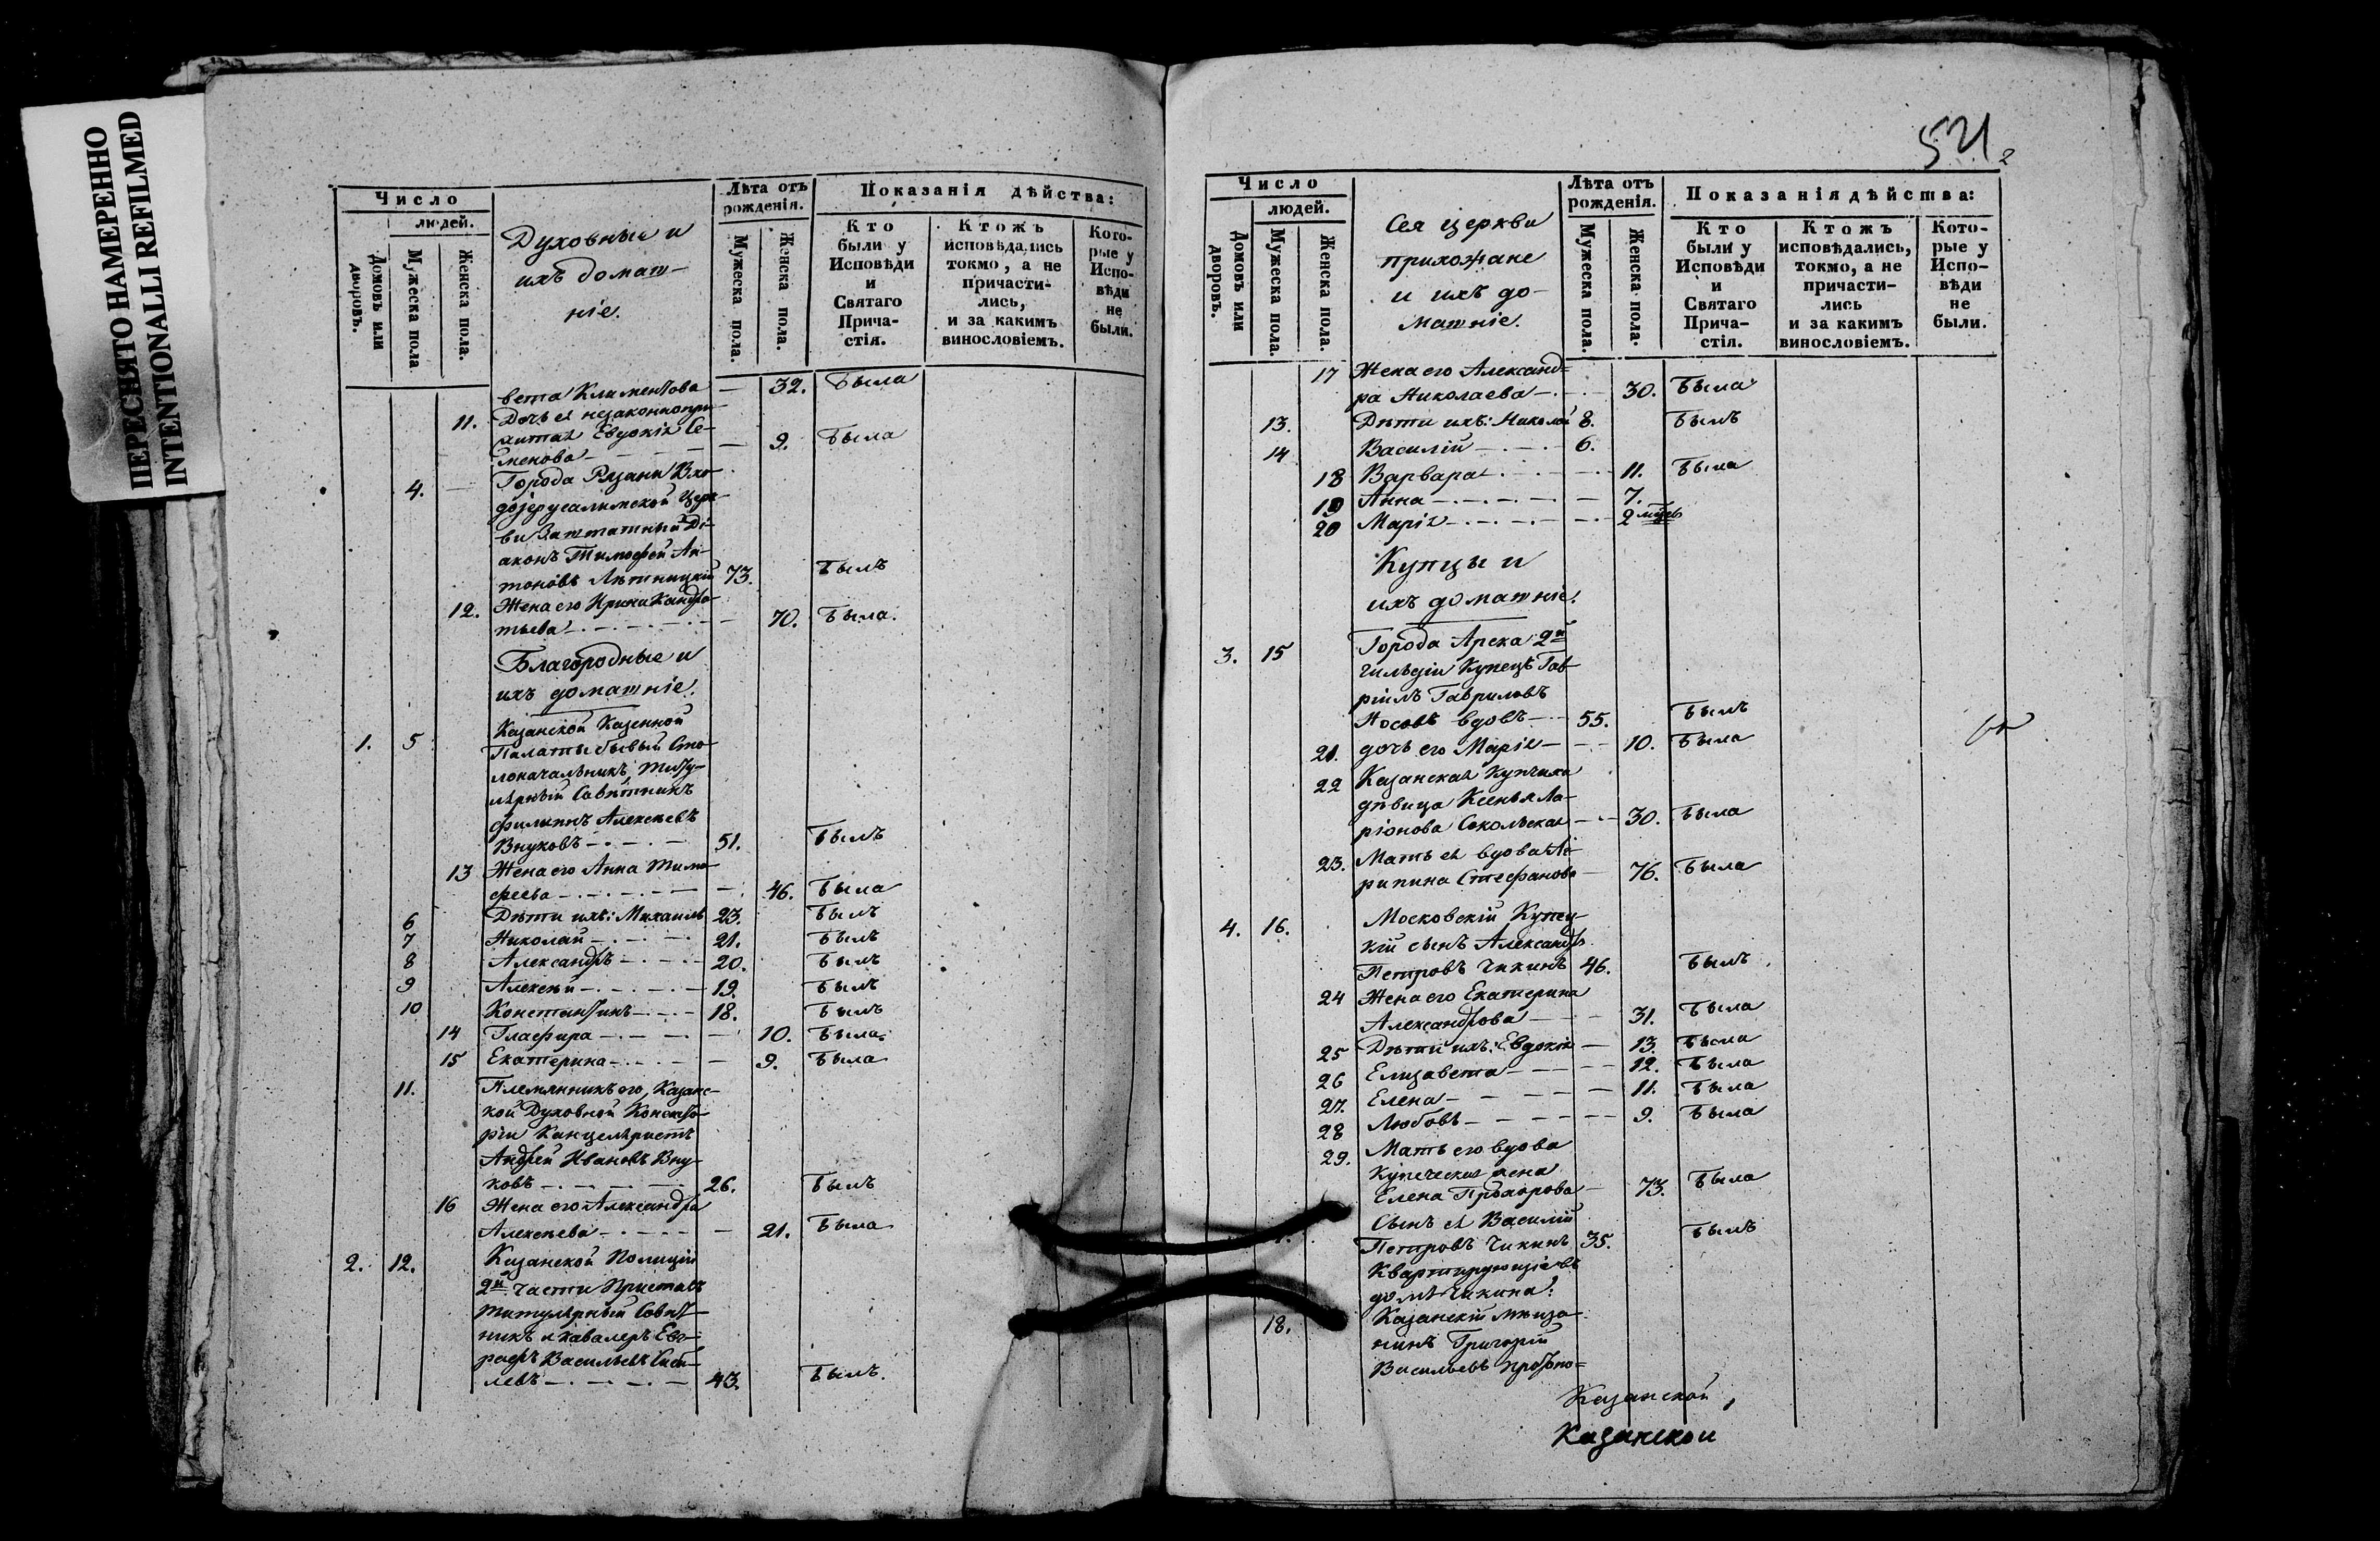 ПЕРЕСНЯТО НАМЕРЕННО
INTENTIONALLI REFILMED
Число
людей.
Домовъ или дворовъ.
Мужеска пола
Женска пола.
Духовные и
ихъ домаш-
ніе.
Лѣта отъ рожденія.
Мужеска пола.
Женска пола.
Показанія дѣйства:
Кто были у Исповѣди и Святаго Прича-стія.
Ктожъ исповѣдались токмо, а не причасти-лись, и за какимъ винословіемъ.
Кото-рые у Испо-вѣди не были.
вета Климентова — 32. Была
11. Дочь ея незаконнопри-
житая Евдокія Се-
менова — 9. Была
4. — Города Рязани Вхо-
дојерусалимской Церк-
ви Заштатный Ді-
аконъ Тимофей Ан-
тоновъ Лѣтницкій 73. Былъ
12. Жена его Ирина Кандра-
тьева — 70. Была.
Благородные и
ихъ домашніе.
Казанской Казенной
1. 5 Палаты бывый Сто-
лоначальникъ, Титу-
лярный Совѣтникъ
Филиппъ Алексѣевъ
Внуковъ — 51. Былъ
13 Жена его Анна Тимо-
феева — 46. Была
6 Дѣти ихъ: Михаилъ 23. Былъ
7 Николай — 21. Былъ
8 Александръ — 20. Былъ
9 Алексѣй — 19. Былъ
10 Константинъ — 18. Былъ
14 Глафира — 10. Была
15 Екатерина — 9. Была
11. Племянникъ его, Казанс-
кой Духовной Консисто-
ріи Канцеляристъ
Андрей Ивановъ Вну-
ковъ — 26. Былъ
16 Жена его Александра
Алексѣева — 21. Была
2. 12. Казанской Полиціи
2й части Приставъ
Титулярный Совѣт-
никъ и кавалеръ Евг-
рафъ Васильевъ
левъ — 43. Былъ.
521
2
Число
людей.
Домовъ или дворовъ.
Мужеска пола.
Женска пола.
Сея церкви
прихожане
и ихъ до-
машніе.
Лѣта отъ рожденія.
Мужеска пола.
Женска пола.
Показанія дѣйства:
Кто были у Исповѣди и Святаго Прича-стія.
Ктожъ исповѣдались, токмо, а не причасти-лись и за какимъ винословіемъ.
Кото-рые у Испо-вѣди не были.
17 Жена его Александ=
ра Николаева — 30. Была
13. Дѣти ихъ: Николай 8. Былъ
14 Василій — 6.
18 Варвара — 11. Была
19 Анна — 7.
20 Марія — 2 мѣсяц
Купцы и
ихъ домашніе.
3. 15 Города Арска 2й
гильдіи Купецъ Гав-
ріилъ Гавриловъ
Носовъ вдовъ — 55. Былъ
21. дочь его Марія — 10. Была
22 Казанская Купчиха
дѣвица Ксенья Ла-
ріонова Сокольская — 30. Была
23. Мать ея вдова Аг-
рипина Стефанова — 76. Была
4. 16. Московскій Купец-
кій сынъ Александръ
Петровъ Чикинъ 46. Былъ
24 Жена его Екатерина
Александрова — 31. Была
25 Дѣти ихъ: Евдокія — 13. Была
26 Елизавета — 12. Была
27. Елена — 11. Была
28 Любовь — 9. Была
29. Мать его вдова
Купеческая жена
Елена Прохорова — 73. Была
Сынъ ея Василій
Петровъ Чикинъ 35. Былъ
Квартирующіе въ
домѣ Чикина:
18. Казанскій мѣща-
нинъ Григорій
Васильевъ Протопо=
Казанской,
Казанской